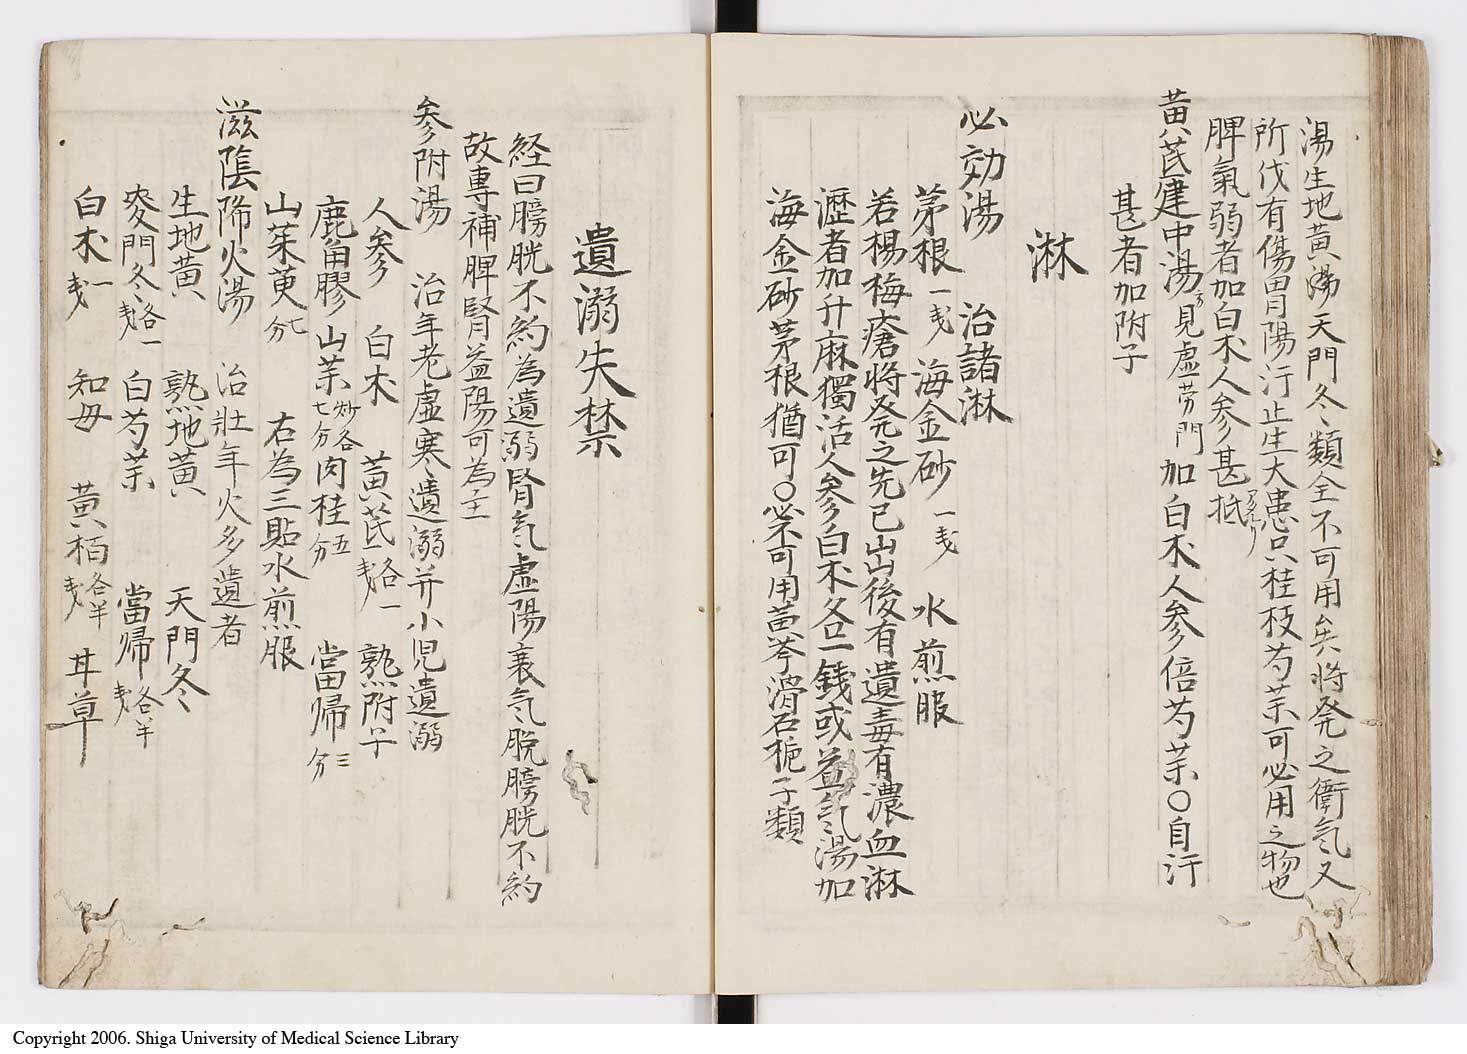 湯生地黄湯天門冬類全不可用矣将発之衛気又
所伐有傷胃陽汗止生大患只桂枝芍薬可必用之物也
脾氣弱者加白朮人参甚抵
黄芪建中湯方見虚労門加白朮人参倍芍薬〇自汗
甚者加附子
淋
必効湯 治諸淋
茅根一戔 海金砂一戔 水煎服
若楊梅瘡将発之先已山後有遺毒有濃血淋
瀝者加升麻獨活人参白朮各一錢或益気湯加
海金砂茅根猶可〇必不可用黄芩滑石梔子類
遺溺失禁
経曰膀胱不約為遺溺腎気虚陽衰気脱膀胱不約
故専補脾腎益陽可為主
参附湯 治年老虚寒遺溺并小児遺溺
人参 白朮 黄芪各一戔 熟附子
鹿角膠 山薬炒各七分 肉桂五分 當帰三分
山茱萸七分 右為三貼水煎服
滋陰降火湯 治壯年火多遺者
生地黄 熟地黄 天門冬
麥門冬各一戔 白芍薬 當帰各半戔
白朮一戔 知母 黄栢各半戔 甘草
Copyright 2006. Shiga University of Medical Science Library